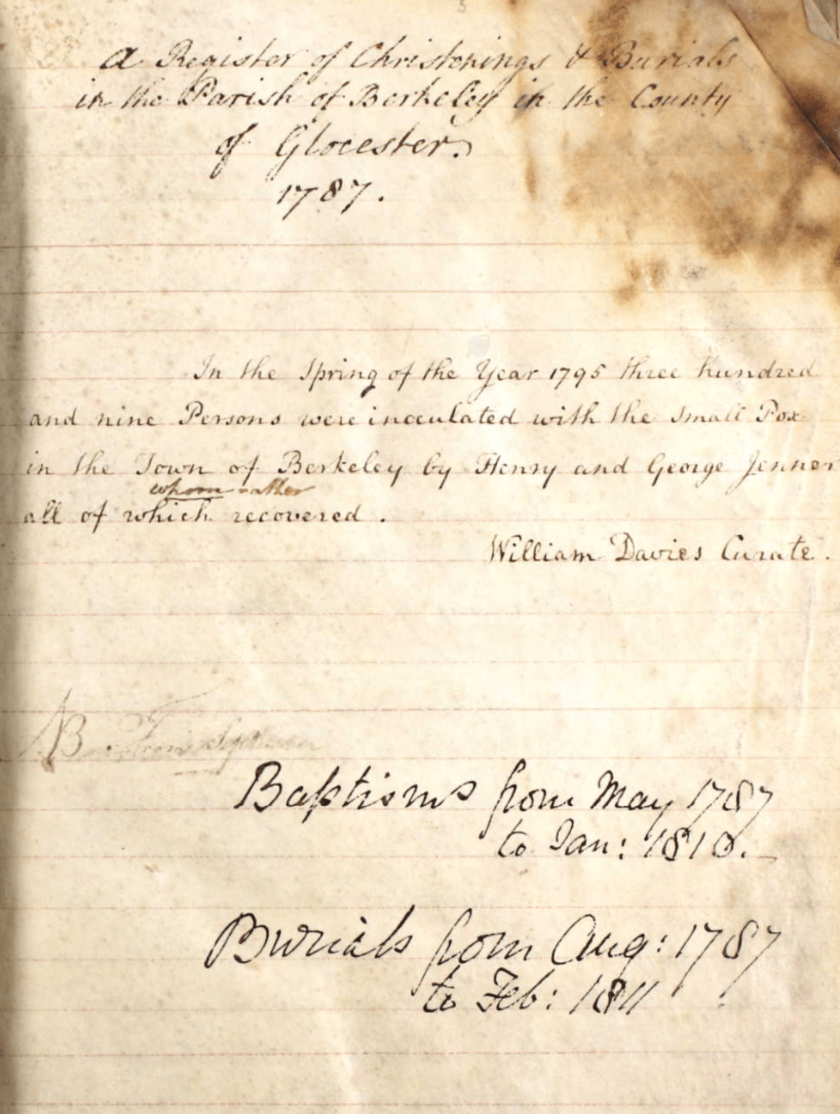 5
A Register of Christenings & Burials
in the Parish of Berkeley in the County
of Glocester.
1787.
In the Spring of the Year 1795 three hundred
and nine Persons were inoculated with the Small Pox
in the Town of Berkeley by Henry and George Jenner
whom rather
all of which recovered.
William Davies Curate.
NB. From
Baptisms from May 1787
to Jan: 1810.
Burials from Aug: 1787
to Feb: 1811